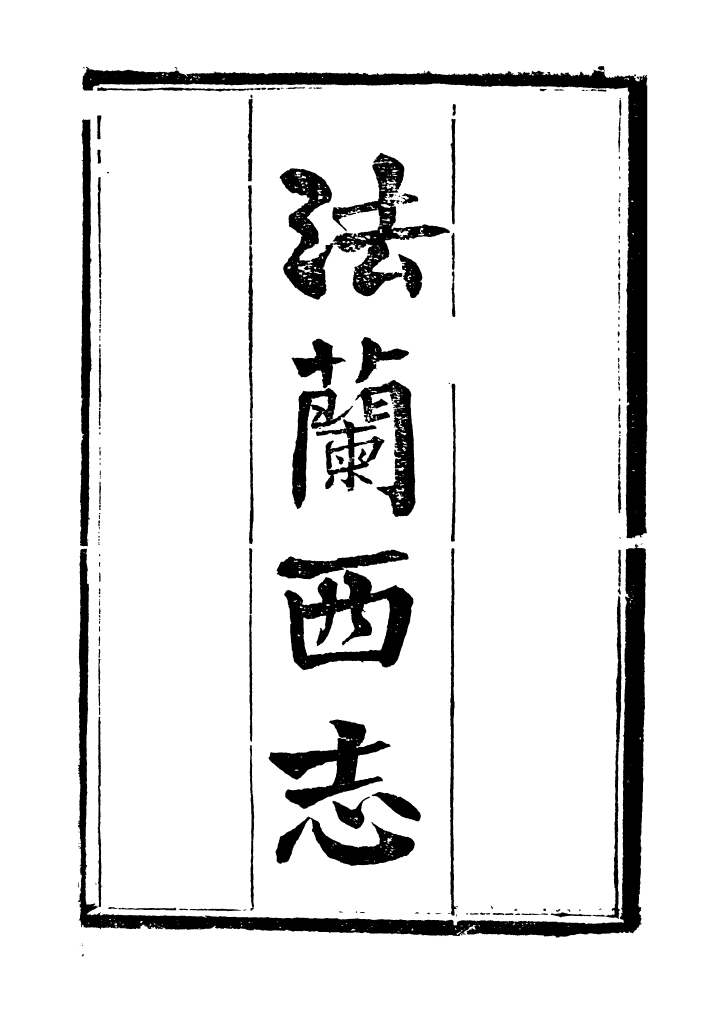 法蘭西志